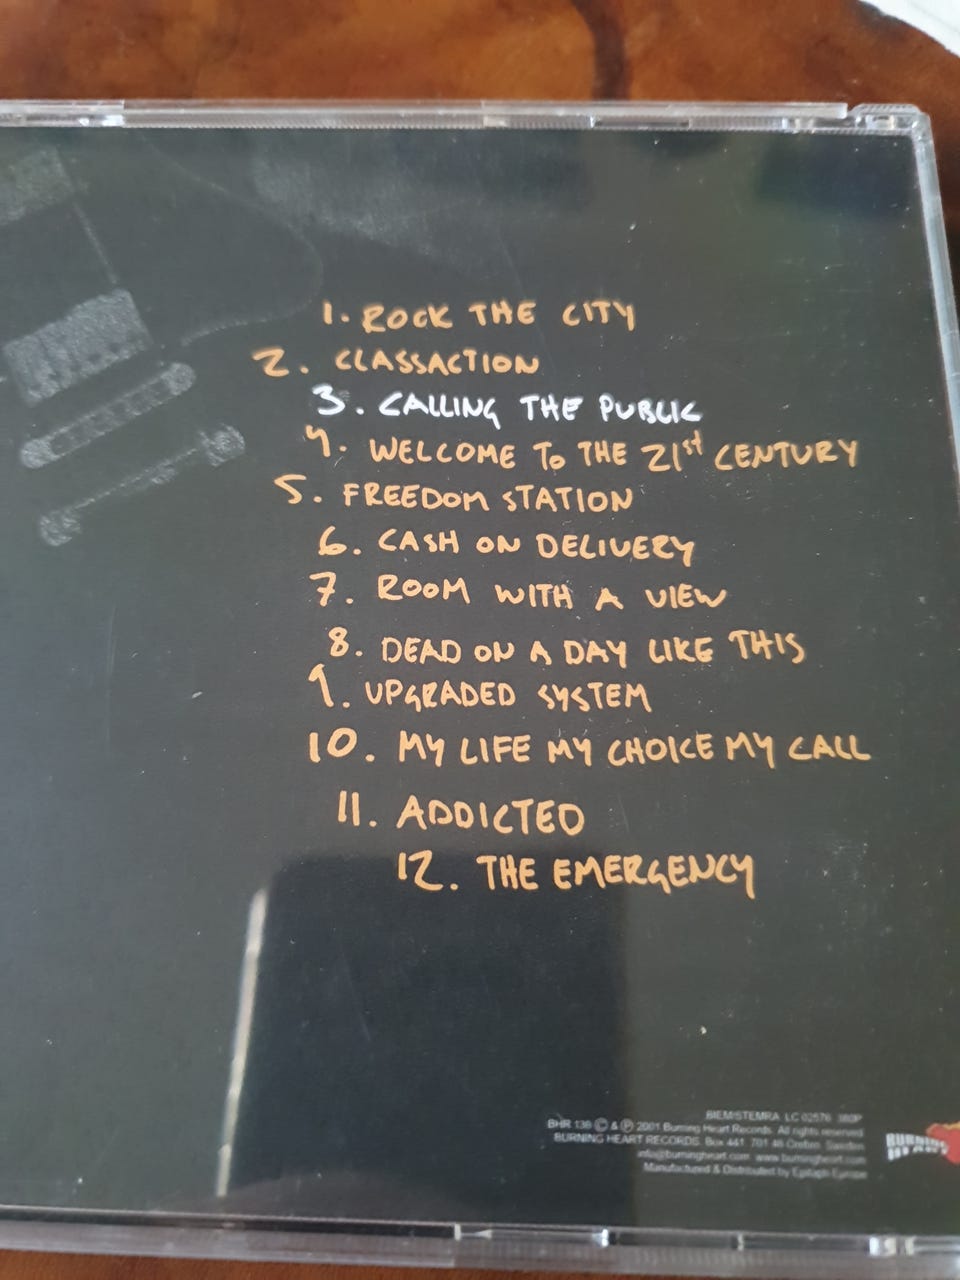 1. ROCK THE CITY
2. CLASSACTION
3. CALLING THE PUBLIC
4. WELCOME TO THE 21st CENTURY
5. FREEDOM STATION
6. CASH ON DELIVERY
7. ROOM WITH A VIEW
8. DEAD ON A DAY LIKE THIS
9. UPGRADED SYSTEM
10. MY LIFE MY CHOICE MY CALL
11. ADDICTED
12. THE EMERGENCY
BIEM/STEMRA LC 02576 360P
BHR 136 © & ℗ 2001 Burning Heart Records. All rights reserved
BURNING HEART RECORDS. Box 441. 701 48 Örebro. Sweden
info@burningheart.com www.burningheart.com
Manufactured & Distributed by Epitaph Europe
BURNING
HEART